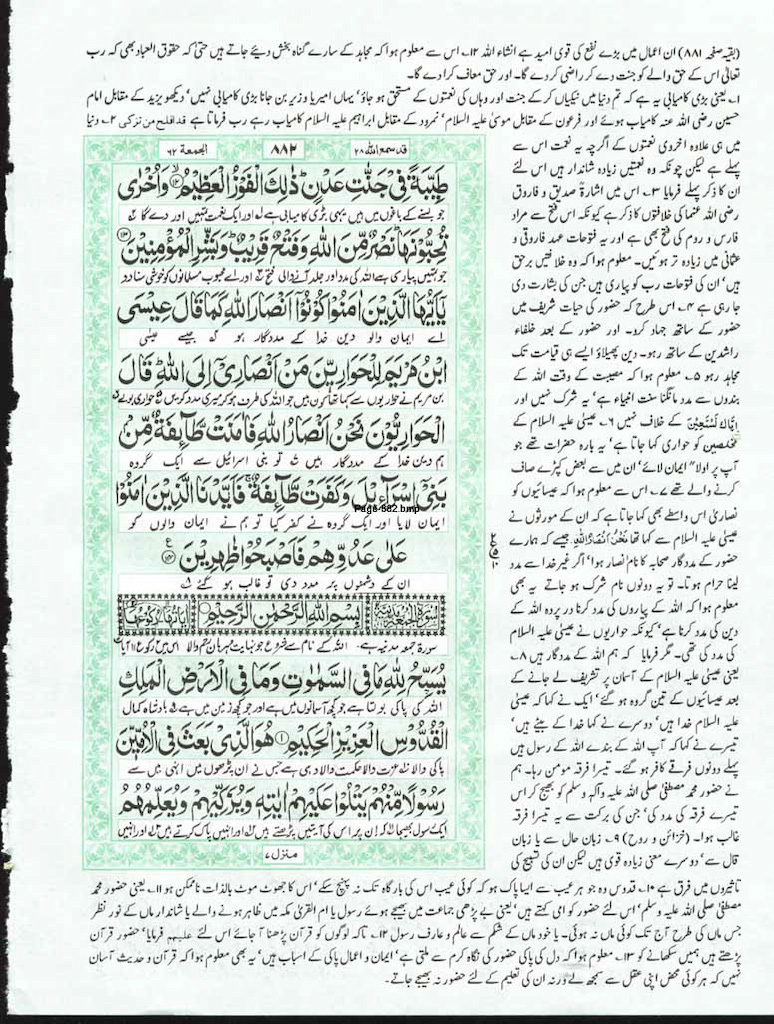 (بقیہ صفحہ ۸۸۱) ان اعمال میں بڑے نفع کی قوی امید ہے انشاء اللہ ۱۲۔ اس سے معلوم ہوا کہ مجاہد کے سارے گناہ بخش دیئے جاتے ہیں حتیٰ کہ حقوق العباد بھی کہ رب
تعالیٰ اس کے حق والے کو جنت دے کر راضی کر دے گا۔ اور حق معاف کرا دے گا۔
۱۔ یعنی بڑی کامیابی یہ ہے کہ تم دنیا میں نیکیاں کر کے جنت اور وہاں کی نعمتوں کے مستحق ہو جاؤ' یہاں امیر یا وزیر بن جانا بڑی کامیابی نہیں' دیکھو یزید کے مقابل امام
حسین رضی اللہ عنہ کامیاب ہوئے اور فرعون کے مقابل موسیٰ علیہ السلام' نمرود کے مقابل ابراہیم علیہ السلام کامیاب رہے رب فرماتا ہے قد افلح من تزکی ۲۔ دنیا
الجمعة ۶۲
۸۸۲
قد سمع الله ۲۸
طَيِّبَةً فِي جَنّٰتِ عَدْنٍ ذٰلِكَ الْفَوْزُ الْعَظِيْمُ وَاُخْرٰى
جو بسنے کے باغوں میں ہیں یہی بڑی کامیابی ہے اور ایک نعمت تمہیں اور دے گا
تُحِبُّوْنَهَا نَصْرٌ مِّنَ اللهِ وَفَتْحٌ قَرِيْبٌ وَبَشِّرِ الْمُؤْمِنِيْنَ
جو تمہیں پیاری ہے اللہ کی مدد اور جلد آنے والی فتح اور اے محبوب مسلمانوں کو خوشی سنا دو
يٰاَيُّهَا الَّذِيْنَ اٰمَنُوْا كُوْنُوْا اَنْصَارَ اللهِ كَمَا قَالَ عِيْسَى
اے ایمان والو دین خدا کے مددگار ہو جیسے عیسیٰ
ابْنُ مَرْيَمَ لِلْحَوَارِيّٖنَ مَنْ اَنْصَارِيْ اِلَى اللهِ قَالَ
بن مریم نے حواریوں سے کہا تھا کون ہیں جو اللہ کی طرف ہو کر میری مدد کریں حواری بولے
الْحَوَارِيُّوْنَ نَحْنُ اَنْصَارُ اللهِ فَاٰمَنَتْ طَّآئِفَةٌ مِّنْ
ہم دین خدا کے مددگار ہیں تو بنی اسرائیل سے ایک گروہ
بَنِيْ اِسْرَآءِيْلَ وَكَفَرَتْ طَّآئِفَةٌ فَاَيَّدْنَا الَّذِيْنَ اٰمَنُوْا
Page-882.bmp
ایمان لایا اور ایک گروہ نے کفر کیا تو ہم نے ایمان والوں کو
عَلٰى عَدُوِّهِمْ فَاَصْبَحُوْا ظٰهِرِيْنَ
ان کے دشمنوں پر مدد دی تو غالب ہو گئے
بِسْمِ اللهِ الرَّحْمٰنِ الرَّحِيْمِ
سورۃ جمعہ مدنیہ ہے اللہ کے نام سے شروع جو نہایت مہربان رحم والا اس میں ۲ رکوع ۱۱ آیات
يُسَبِّحُ لِلّٰهِ مَا فِي السَّمٰوٰتِ وَمَا فِي الْاَرْضِ الْمَلِكِ
اللہ کی پاکی بولتا ہے جو کچھ آسمانوں میں ہے اور جو کچھ زمین میں ہے بادشاہ کمال
الْقُدُّوْسِ الْعَزِيْزِ الْحَكِيْمِ هُوَ الَّذِيْ بَعَثَ فِي الْاُمِّيّٖنَ
پاکی والا عزت والا حکمت والا وہی ہے جس نے ان پڑھوں میں انہی میں سے
رَسُوْلًا مِّنْهُمْ يَتْلُوْا عَلَيْهِمْ اٰيٰتِهٖ وَيُزَكِّيْهِمْ وَيُعَلِّمُهُمُ
ایک رسول بھیجا کہ ان پر اس کی آیتیں پڑھتے ہیں اور انہیں پاک کرتے ہیں اور انہیں
منزل ۷
میں ہی علاوہ اخروی نعمتوں کے اگرچہ یہ نعمت اس سے
پہلے ہے لیکن چونکہ وہ نعتیں زیادہ شاندار ہیں اس لئے
ان کا ذکر پہلے فرمایا ۳۔ اس میں اشارۃ صدیق و فاروق
رضی اللہ عنہما کی خلافتوں کا ذکر ہے کیونکہ اس فتح سے مراد
فارس و روم کی فتح بھی ہے اور یہ فتوحات عہد فاروقی و
عثمانی میں زیادہ تر ہوئیں۔ معلوم ہوا کہ وہ خلافتیں برحق
ہیں' ان کی فتوحات رب کو پیاری ہیں جن کی بشارت دی
جا رہی ہے ۴۔ اس طرح کہ حضور کی حیات شریف میں
حضور کے ساتھ جہاد کرو۔ اور حضور کے بعد خلفاء
راشدین کے ساتھ رہو۔ دین پھیلاؤ ایسے ہی قیامت تک
مجاہد رہو ۵۔ معلوم ہوا کہ مصیبت کے وقت اللہ کے
بندوں سے مدد مانگنا سنت انبیاء ہے' یہ شرک نہیں اور
اِيَّاكَ نَسْتَعِيْنُ کے خلاف نہیں ۶۔ عیسیٰ علیہ السلام کے
مخلصین کو حواری کہا جاتا ہے' یہ بارہ حضرات تھے جو
آپ پر اولاً ایمان لائے' ان میں سے بعض کپڑے صاف
کرنے والے تھے ۷۔ اس سے معلوم ہوا کہ عیسائیوں کو
نصاریٰ اس واسطے بھی کہا جاتا ہے کہ ان کے مورثوں نے
عیسیٰ علیہ السلام سے کہا تھا نَحْنُ اَنْصَارُ اللهِ جیسے کہ ہمارے
حضور کے مددگار صحابہ کا نام انصار ہوا' اگر غیر خدا سے مدد
لینا حرام ہوتا۔ تو یہ دونوں نام شرک ہو جاتے یہ بھی
معلوم ہوا کہ اللہ کے پیاروں کی مدد کرنا در پردہ اللہ کے
دین کی مدد کرنا ہے' کیونکہ حواریوں نے عیسیٰ علیہ السلام
کی مدد کی تھی۔ مگر فرمایا کہ ہم اللہ کے مددگار ہیں ۸۔
یعنی عیسیٰ علیہ السلام کے آسمان پر تشریف لے جانے کے
بعد عیسائیوں کے تین گروہ ہو گئے' ایک نے کہا کہ عیسیٰ
علیہ السلام خدا ہیں' دوسرے نے کہا خدا کے بیٹے ہیں'
تیسرے نے کہا کہ آپ اللہ کے بندے اللہ کے رسول ہیں
پہلے دونوں فرقے کافر ہو گئے۔ تیسرا فرقہ مومن رہا۔ ہم
نے حضور محمد مصطفیٰ صلی اللہ علیہ وآلہ وسلم کو بھیج کر اس
تیسرے فرقہ کی مدد کی' جن کی برکت سے یہ تیسرا فرقہ
غالب ہوا۔ (خزائن و روح) ۹۔ زبان حال سے یا زبان
قال سے' دوسرے معنی زیادہ قوی ہیں لیکن ان کی تسبیح کی
تاثیروں میں فرق ہے ۱۰۔ قدوس وہ جو ہر عیب سے ایسا پاک ہو کہ کوئی عیب اس کی بارگاہ تک نہ پہنچ سکے' اس کا جھوٹ موٹ بالذات ناممکن ہو ۱۱۔ یعنی حضور محمد
مصطفیٰ صلی اللہ علیہ وسلم' اسی لئے حضور کو امی کہتے ہیں' یعنی بے پڑھی جماعت میں بھیجے ہوئے رسول یا ام القریٰ مکہ میں ظاہر ہونے والے یا شاندار ماں کے نور نظر
جس ماں کی طرح آج تک کوئی ماں نہ ہوئی۔ یا خود ماں کے شکم سے عالم و عارف رسول ۱۲۔ تاکہ لوگوں کو قرآن پڑھنا آ جائے اس لئے علیہم فرمایا' حضور قرآن
پڑھتے ہیں ہمیں سکھانے کو ۱۳۔ معلوم ہوا کہ دل کی پاکی حضور کی نگاہ کرم سے ملتی ہے' ایمان و اعمال پاکی کے اسباب ہیں' یہ بھی معلوم ہوا کہ قرآن و حدیث آسان
نہیں کہ ہر کوئی محض اپنی عقل سے سمجھ لے ورنہ ان کی تعلیم کے لئے حضور نہ بھیجے جاتے۔